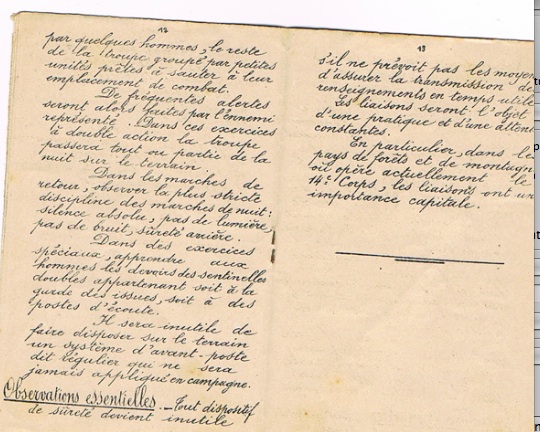 12
par quelques hommes, le reste
de la troupe groupé par petites
unités prêtes à sauter à leur
emplacement de combat.
De fréquentes alertes
seront alors faites par l'ennemi
représenté. Dans ces exercices
à double action la troupe
passera tout ou partie de la
nuit sur le terrain.
Dans les marches de
retour, observer la plus stricte
discipline des marches de nuit :
silence absolu, pas de lumière,
pas de bruit, sûreté arrière.
Dans des exercices
spéciaux, apprendre aux
hommes les devoirs des sentinelles
doubles appartenant soit à la
garde des issues, soit à des
postes d'écoute.
Il sera inutile de
faire disposer sur le terrain
un système d'avant-poste
dit régulier qui ne sera
jamais appliqué en campagne.
Observations essentielles. - Tout dispositif
de sûreté devient inutile
13
s'il ne prévoit pas les moyen
d'assurer la transmission de
renseignements en temps utile
Les liaisons seront l'objet
d'une pratique et d'une atten
constantes.
En particulier, dans le
pays de forêts et de montagn
où opère actuellement le
14e Corps, les liaisons ont un
importance capitale.